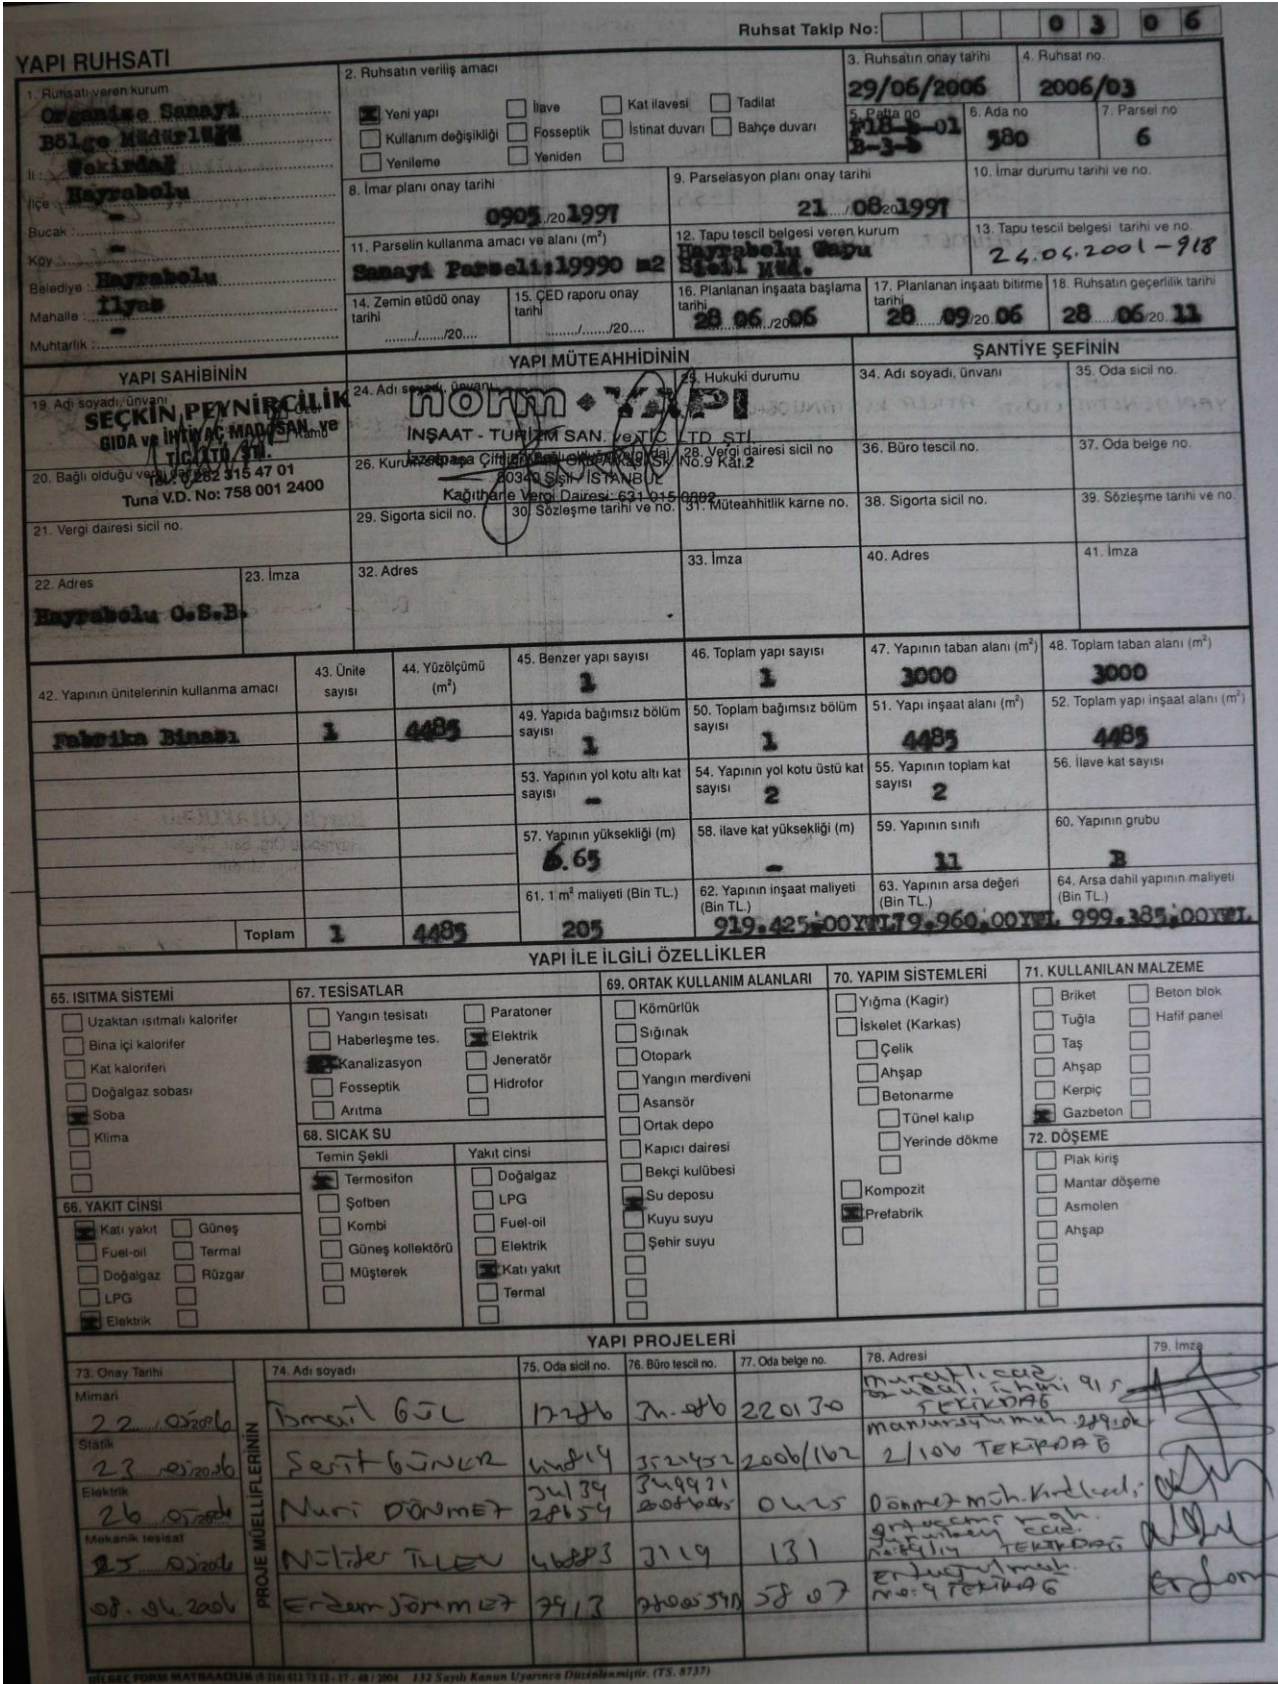 Ruhsat Takip No: 0 3 0 6
YAPI RUHSATI
1. Ruhsatı veren kurum
Organize Sanayi
Bölge Müdürlüğü
İl : Tekirdağ
İlçe : Hayrabolu
Bucak : -
Köy :
Belediye : Hayrabolu
Mahalle : İlyas
Muhtarlık : -
2. Ruhsatın veriliş amacı
Yeni yapı İlave Kat ilavesi Tadilat
Kullanım değişikliği Fosseptik İstinat duvarı Bahçe duvarı
Yenileme Yeniden
3. Ruhsatın onay tarihi
29/06/2006
4. Ruhsat no.
2006/03
5. Pafta no
B-3-b
6. Ada no
580
7. Parsel no
6
8. İmar planı onay tarihi
0905/20 1997
9. Parselasyon planı onay tarihi
21..../.08201997
10. İmar durumu tarihi ve no.
11. Parselin kullanma amacı ve alanı (m²)
Sanayi Parseli:19990 m2
12. Tapu tescil belgesi veren kurum
Hayrabolu Tapu
Sicil Müd.
13. Tapu tescil belgesi tarihi ve no.
14. Zemin etüdü onay tarihi
......./......../20....
15. ÇED raporu onay tarihi
......../......./20....
16. Planlanan inşaata başlama tarihi
28 06 /2006
17. Planlanan inşaatı bitirme tarihi
28 ..../09/20.06
18. Ruhsatın geçerlilik tarihi
28 ..../06/20.11
YAPI SAHİBİNİN
19. Adı soyadı, ünvanı
SEÇKİN PEYNİRCİLİK
GIDA ve İHTİYAÇ MAD. SAN. ve
TİC. LTD. ŞTİ.
Kamu
20. Bağlı olduğu vergi dairesi
Tel: 0.282 315 47 01
Tuna V.D. No: 758 001 2400
21. Vergi dairesi sicil no.
22. Adres
Hayrabolu O.S.B.
23. İmza
YAPI MÜTEAHHİDİNİN
24. Adı soyadı, ünvanı
25. Hukuki durumu
norm YAPI
İNŞAAT - TURİZM SAN. ve TİC LTD. ŞTİ.
26. Kurum
28. Vergi dairesi sicil no
İzzetpaşa Çiftliği No.9 Kat.2
80340 Şişli / İSTANBUL
Kağıthane Vergi Dairesi: 631 015 0882
29. Sigorta sicil no.
30. Sözleşme tarihi ve no.
31. Müteahhitlik karne no.
32. Adres
33. İmza
ŞANTİYE ŞEFİNİN
34. Adı soyadı, ünvanı
35. Oda sicil no.
36. Büro tescil no.
37. Oda belge no.
38. Sigorta sicil no.
39. Sözleşme tarihi ve no.
40. Adres
41. İmza
42. Yapının ünitelerinin kullanma amacı
43. Ünite sayısı
44. Yüzölçümü (m²)
Fabrika Binası 1 4485
Toplam 1 4485
45. Benzer yapı sayısı
1
46. Toplam yapı sayısı
1
47. Yapının taban alanı (m²)
3000
48. Toplam taban alanı (m²)
3000
49. Yapıda bağımsız bölüm sayısı
1
50. Toplam bağımsız bölüm sayısı
1
51. Yapı inşaat alanı (m²)
4485
52. Toplam yapı inşaat alanı (m²)
4485
53. Yapının yol kotu altı kat sayısı
-
54. Yapının yol kotu üstü kat sayısı
2
55. Yapının toplam kat sayısı
2
56. İlave kat sayısı
57. Yapının yüksekliği (m)
6.65
58. ilave kat yüksekliği (m)
-
59. Yapının sınıfı
11
60. Yapının grubu
B
61. 1 m² maliyeti (Bin TL.)
205
62. Yapının inşaat maliyeti (Bin TL.)
919.425,00YTL
63. Yapının arsa değeri (Bin TL.)
79.960,00YTL
64. Arsa dahil yapının maliyeti (Bin TL.)
999.385,00YTL
YAPI İLE İLGİLİ ÖZELLİKLER
65. ISITMA SİSTEMİ
Uzaktan ısıtmalı kalorifer
Bina içi kalorifer
Kat kaloriferi
Doğalgaz sobası
Soba
Klima
66. YAKIT CİNSİ
Katı yakıt Güneş
Fuel-oil Termal
Doğalgaz Rüzgar
LPG
Elektrik
67. TESİSATLAR
Yangın tesisatı Paratoner
Haberleşme tes. Elektrik
Kanalizasyon Jeneratör
Fosseptik Hidrofor
Arıtma
68. SICAK SU
Temin Şekli Yakıt cinsi
Termosifon Doğalgaz
Şofben LPG
Kombi Fuel-oil
Güneş kollektörü Elektrik
Müşterek Katı yakıt
Termal
69. ORTAK KULLANIM ALANLARI
Kömürlük
Sığınak
Otopark
Yangın merdiveni
Asansör
Ortak depo
Kapıcı dairesi
Bekçi kulübesi
Su deposu
Kuyu suyu
Şehir suyu
70. YAPIM SİSTEMLERİ
Yığma (Kagir)
İskelet (Karkas)
Çelik
Ahşap
Betonarme
Tünel kalıp
Yerinde dökme
Kompozit
Prefabrik
71. KULLANILAN MALZEME
Briket Beton blok
Tuğla Hafif panel
Taş
Ahşap
Kerpiç
Gazbeton
72. DÖŞEME
Plak kiriş
Mantar döşeme
Asmolen
Ahşap
YAPI PROJELERİ
PROJE MÜELLİFLERİNİN
73. Onay Tarihi 74. Adı soyadı 75. Oda sicil no. 76. Büro tescil no. 77. Oda belge no. 78. Adresi 79. İmza
Mimari
22 05/2006 İsmail GÜL 220130
TEKİRDAĞ
Statik
23 05/2006 GÜNER 2006/162
2/106 TEKİRDAĞ
Elektrik
26 05/2006 Nuri DÖNMEZ 28654
Mekanik tesisat
25 05/2006 Nilüfer 3119 131
TEKİRDAĞ
08.06.2006 Erdem 7913 58 07
No:4 TEKİRDAĞ
132 Sayılı Kanun Uyarınca Düzenlenmiştir. (TS. 8737)